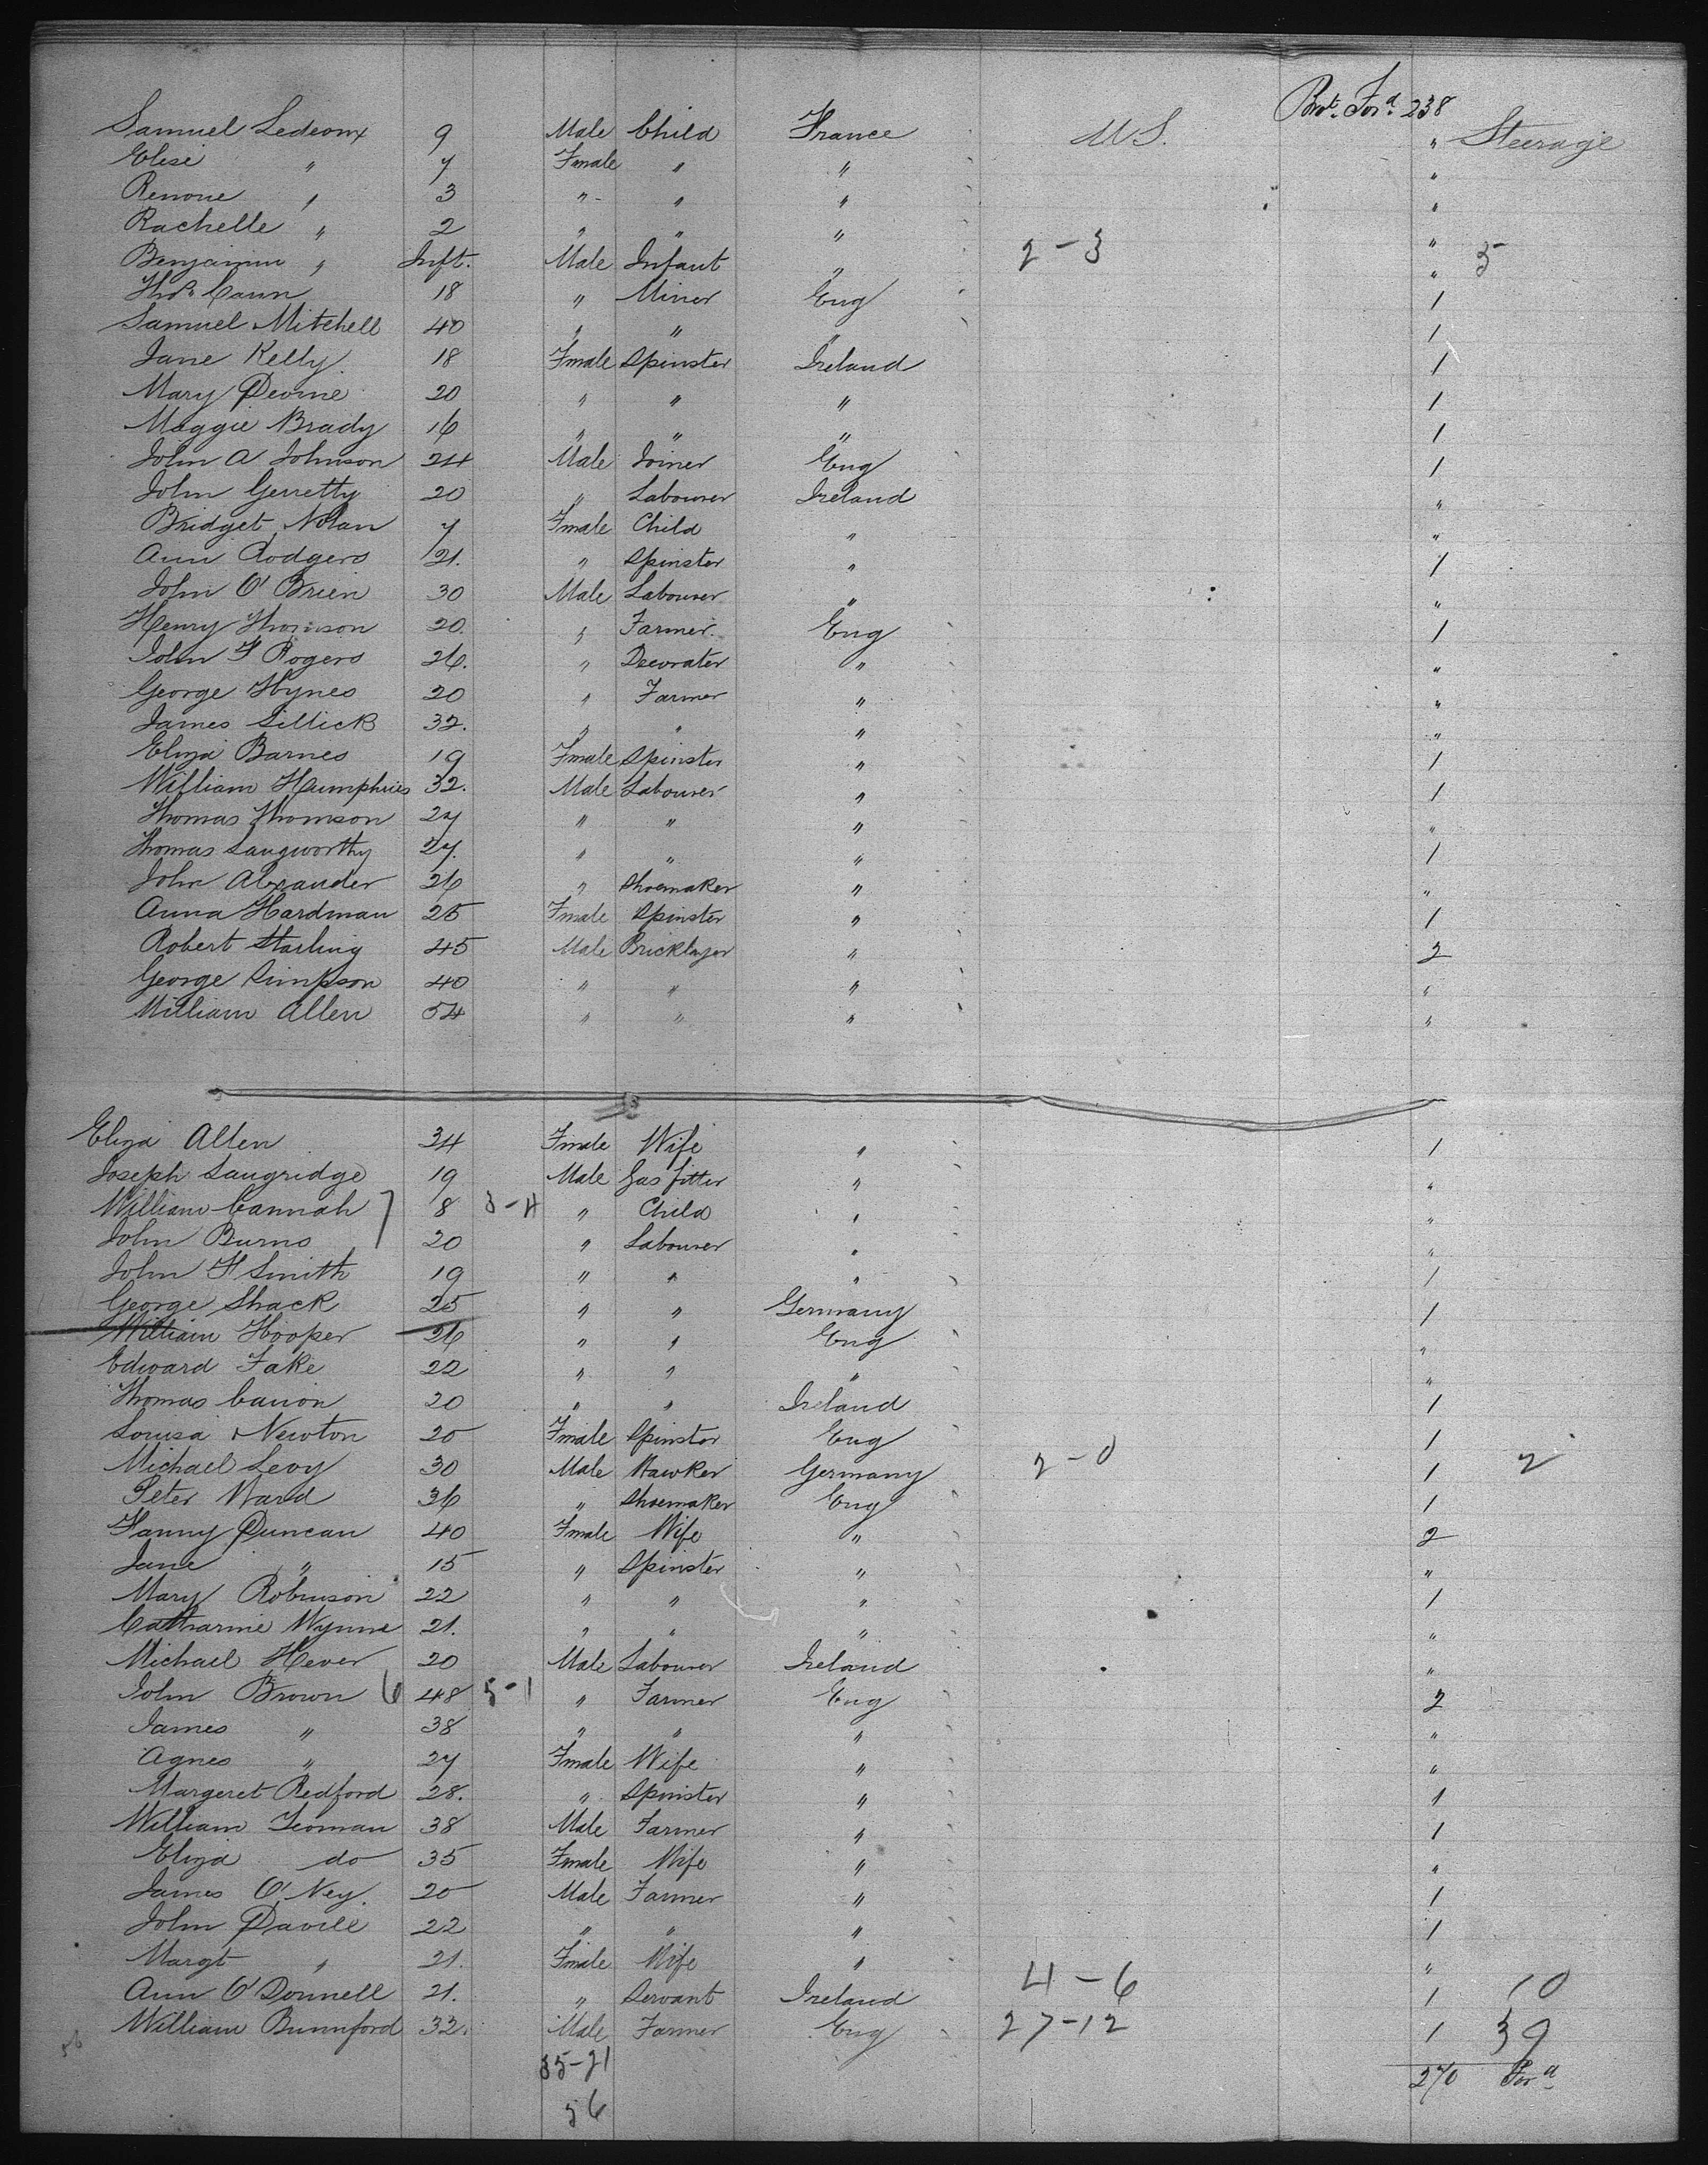 Brot. Ford. 238
Samuel Ledeoux 9 Male Child France U S. " Steerage
Elise " 7 Fmale " " "
Renone " 3 " " " "
Rachelle " 2 " " " 2-3 "
Benjamin " Inft. Male Infant " " 5
Thos Cann 18 " Miner Eng 1
Samuel Mitchell 40 " " " 1
Jane Kelly 18 Fmale Spinster Ireland 1
Mary Devine 20 " " " 1
Maggie Brady 16 " " " 1
John A Johnson 24 Male Joiner Eng 1
John Gerretty 20 " Labourer Ireland "
Bridget Nolan 7 Fmale Child " "
Ann Rodgers 21. " Spinster " 1
John O'Brien 30 Male Labourer " "
Henry Thomson 20. " Farmer. Eng 1
John F Rogers 26. " Decorater " "
George Hynes 20 " Farmer " "
James Sillick 32. " " " "
Eliza Barnes 19 Fmale Spinster " 1
William Humphries 32. Male Labourer " 1
Thomas Thomson 27 " " " "
Thomas Langworthy 27. " " " 1
John Alexander 26 " Shoemaker " "
Anna Hardman 25 Fmale Spinster " 1
Robert Starling 45 Male Bricklayer " 2
George Simpson 40 " " " "
William Allen 54 " " " "
Eliza Allen 34 Fmale Wife " 1
Joseph Langridge 19 Male Gas fitter " "
William Cannah 7 8 3-4 " Child " "
John Burns 20 " Labourer " "
John F Smith 19 " " " 1
George Shack 25 " " Germany 1
William Hooper 26 " " Eng "
Edward Fake 22 " " " "
Thomas Canion 20 " " Ireland 1
Louisa Newton 20 Fmale Spinster Eng 1
Michael Levy 30 Male Hawker Germany 2-0 1 2
Peter Ward 36 " Shoemaker Eng 1
Fanny Duncan 40 Fmale Wife " 2
Jane " 15 " Spinster " "
Mary Robinson 22 " " " 1
Catharine Wynne 21. " " " "
Michael Hever 20 Male Labourer Ireland "
John Brown 6 48 5-1 " Farmer Eng 2
James " 38 " " " "
Agnes " 27 Fmale Wife " "
Margeret Redford 28. " Spinster " 1
William Yeoman 38 Male Farmer " 1
Eliza do 35 Fmale Wife " "
James O'Ney. 20 Male Farmer " 1
John Davill 22 " " " 1
Margt " 21. Fmale Wife " "
Ann O'Donnell 21. " Servant Ireland 4-6 1 10
William Bunnford 32. Male Farmer Eng 27-12 1 39
35-21 270 Ford
56